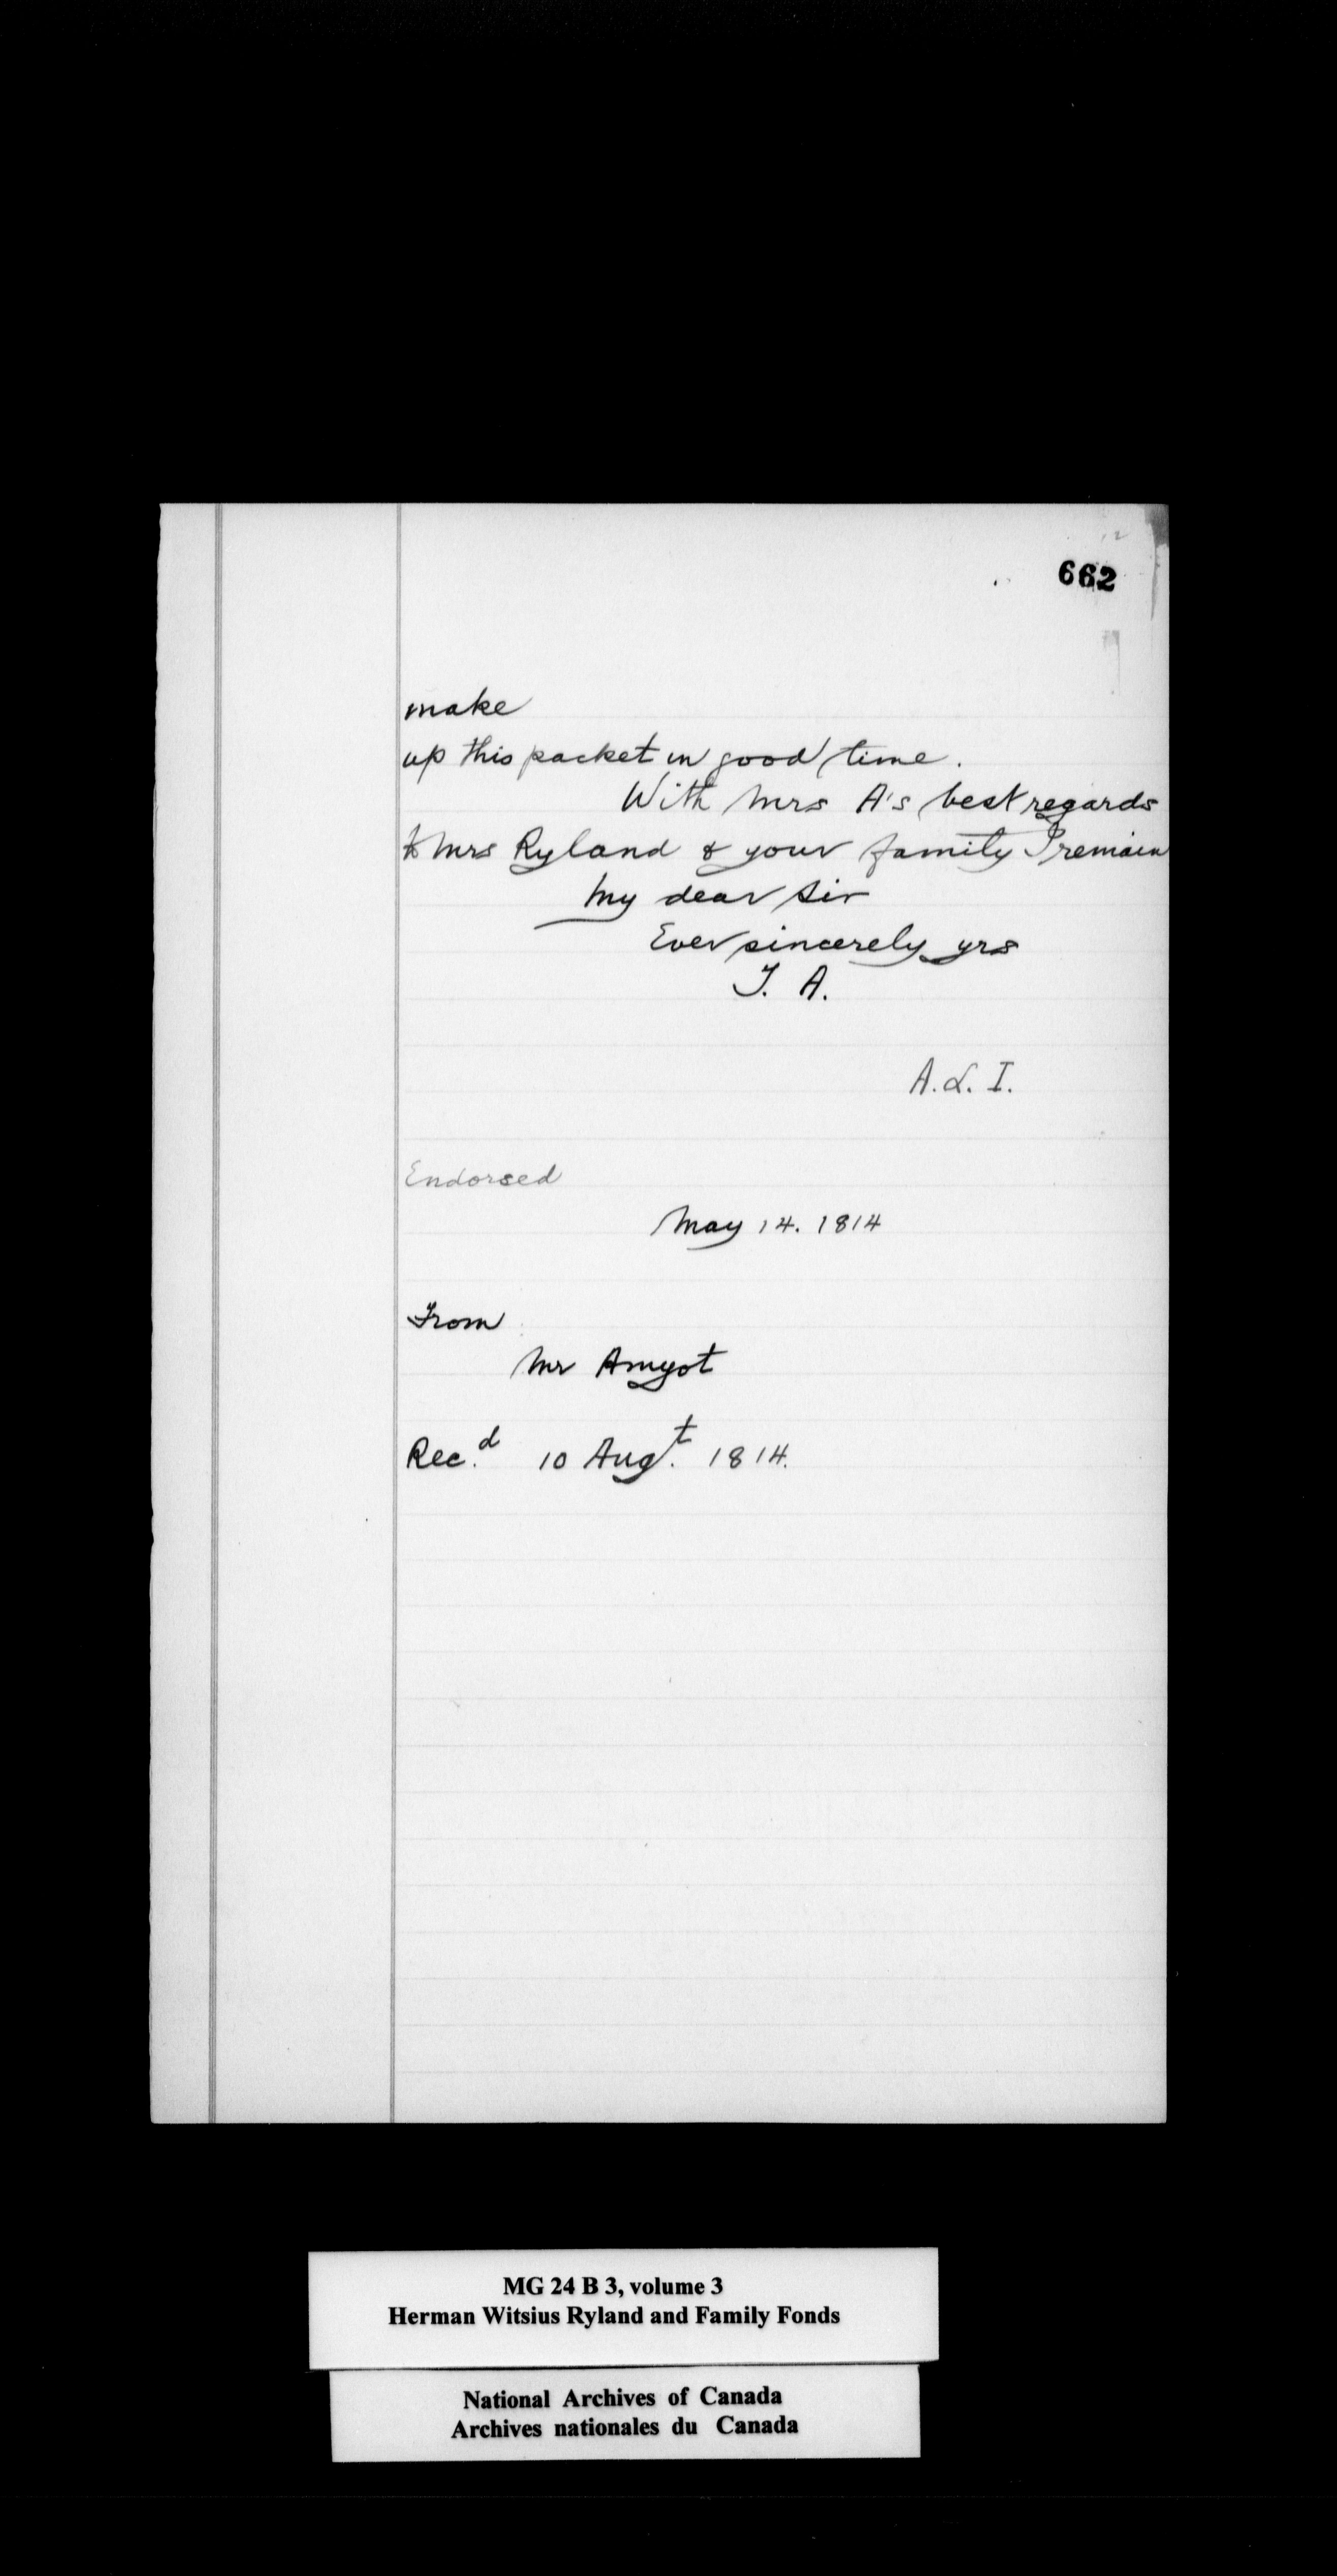 662
make
up this packet in good time.
With Mrs A's best regards
to Mrs Ryland & your family I remain
My dear Sir
Ever sincerely yrs
T. A.
A. L. I.
Endorsed
May 14. 1814
From
Mr Amyot
Rec.d 10 Aug.t 1814.
MG 24 B 3, volume 3
Herman Witsius Ryland and Family Fonds
National Archives of Canada
Archives nationales du Canada